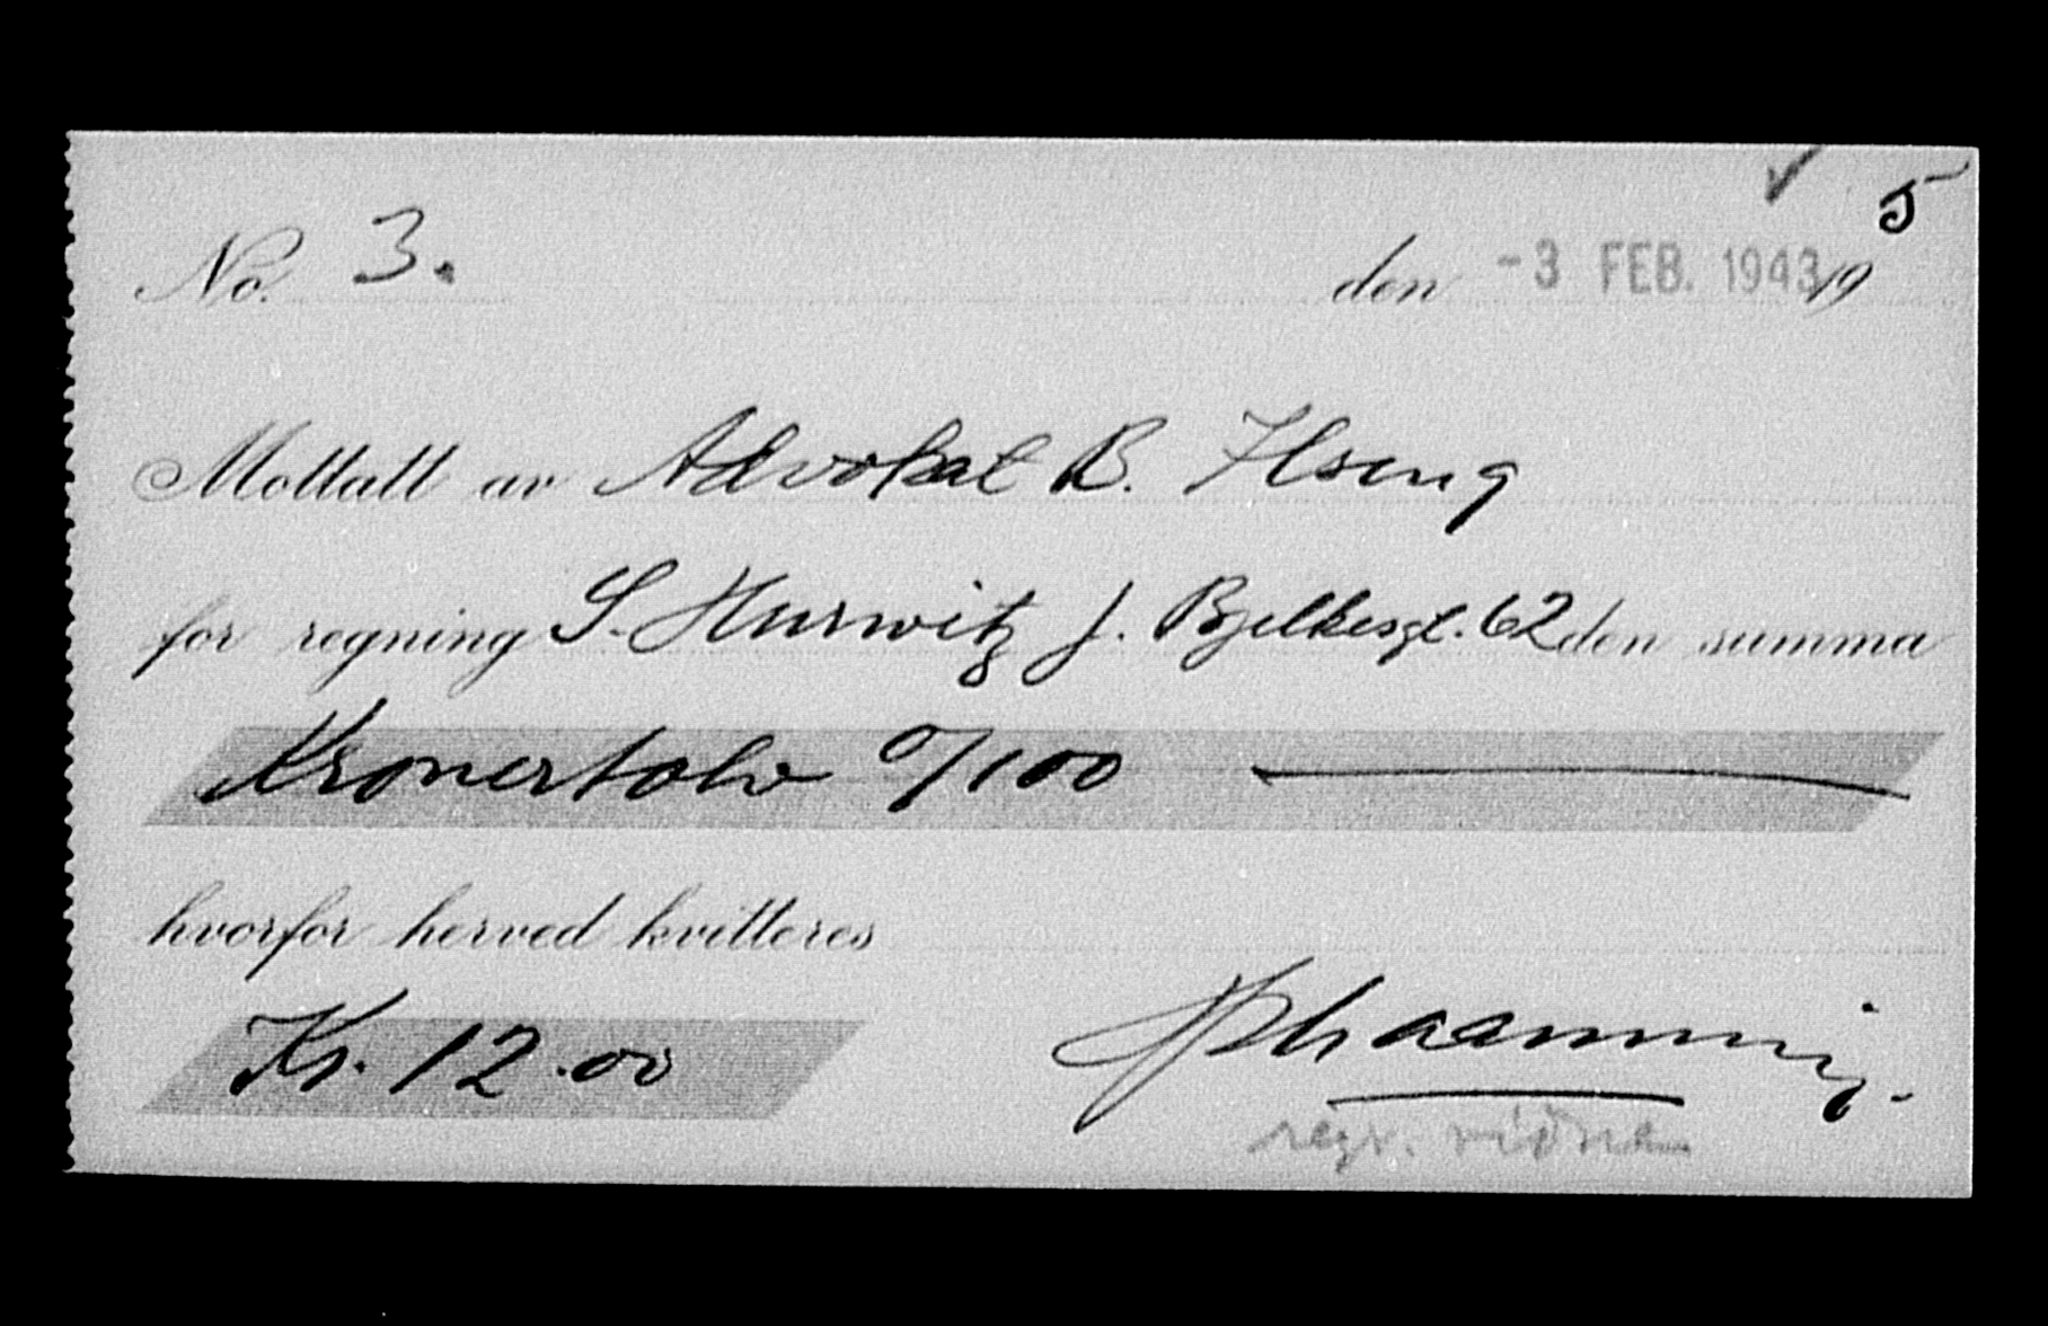 ✓ 5
No. 3. den -3 FEB. 1943 19
Mottatt av Advokat B. Ilseng
for regning S. Hurwitz J. Bjelkesgt. 62 den summa
Kroner tolv 0/100 —
hvorfor herved kvitteres
Kr. 12.00
regr. vidne